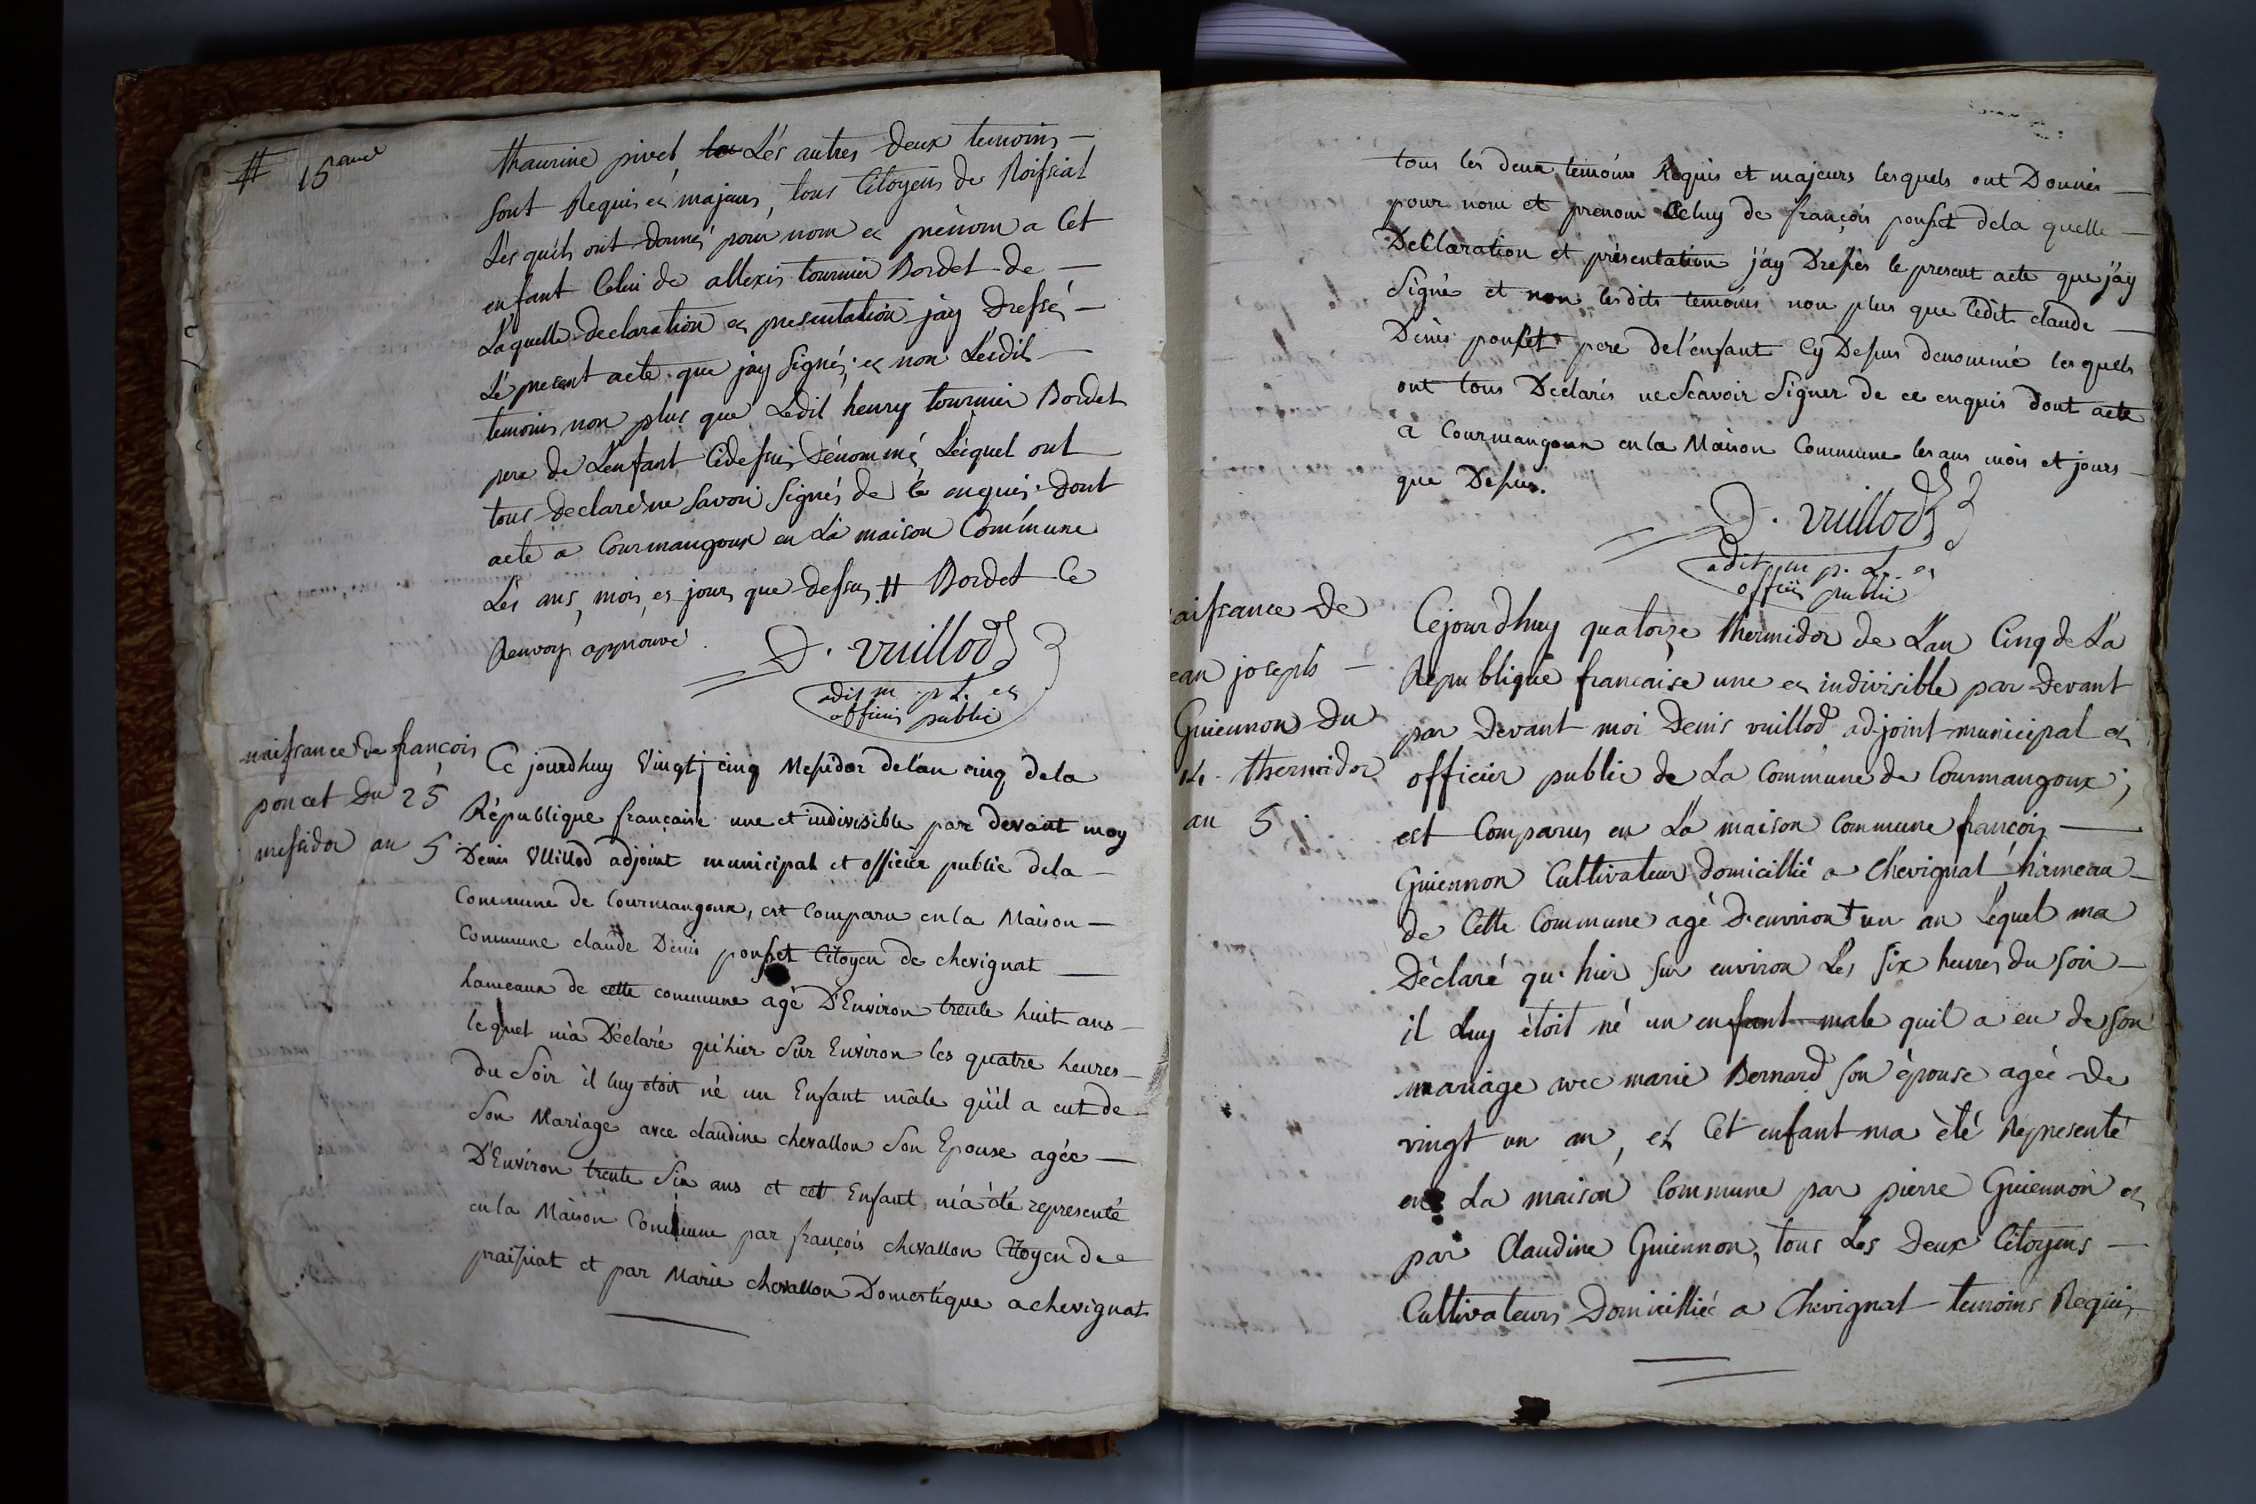 # 15
thaurine pivet Lés autres deux temoins
sont Requis et majeurs, tous Citoyens de Roissiat
Lésquels ont donnés pour nom et prénom a Cet
enfant Celui de allexis tournier Bordet de
Laquelle declaration et presentation jay Dressé
Lé present acte que jay signés, et non Lesdits
temoins non plus que Ledit henry tournier Bordet
pere de Lenfant Cidessus Dénommé Lésquel ont
tous declaré ne savoir signés de ce enquis. Dont
acte a Courmangoux en La maison Commune
Lés ans, mois, et jours que dessus # Bordet Ce
Renvoy approuvé
D. Vuillod
adjt m. p L. et
officier public
naissance de françois
poncet Du 25
messidor an 5
Ce jourdhuy Vingt cinq Messidor de l'an cinq de la
République française une et indivisible par devant moy
Denis Vllillod adjoint municipal et officier public dela
Commune de Courmangoux, est comparu en la Maison
Commune claude Denis pousset Citoyen de chevignat
hameaux de cette commune agé D'Environ trente huit ans
lequel m'a Déclaré qu'hier sur Environ les quatre heures
du soir il luy étoit né un Enfant mâle qu'il a eut de
son Mariage avec claudine chevallon son Epouse agée
D'Environ trente six ans et cet Enfant m'a été representé
en la Maison Commune par françois chevallon Citoyen de
praissiat et par Marie chevallon Domestique a chevignat
tous les deux temoins Requis et majeurs lesquels ont Donnés
pour nom et prenom Celuy de françois pousset dela quelle
Déclaration et présentation j'ay Dressés le present acte que j'ay
Signé et non lesdits temoins non plus que ledit claude
Denis pousset pere de l'enfant Cy Dessus denommé lesquels
ont tous Déclarés ne Scavoir Signer de ce enquis dont acte
a Courmangoux en la Maison Commune les ans mois et jours
que Dessus.
D. Vuillod
adjt m p. L. et
officier public
aissance de
ean joseph
Guiennon du
14. thermidor
an 5
Cejourdhuy quatorze thermidor de L'an Cinq de La
République francaise une et indivisible par devant
par devant moi Denis vuillod adjoint municipal et
officier public de La Commune de Courmangoux;
est Comparus en La maison Commune françois
Guiennon Cultivateur domicillié a Chevignat hameau
de Cette Commune agé d'environt un an Lequel ma
Déclaré qu'hier sur environ Les six heures du soir
il Luy étoit né un enfant male quil a eu de son
mariage avec marie Bernard son épouse agée de
vingt un an, et Cet enfant ma été Representé
en La maison Commune par pierre Guiennon et
par Claudine Guiennon, tous Les Deux Citoyens
Cultivateurs Domicillié a Chevignat temoins Requis